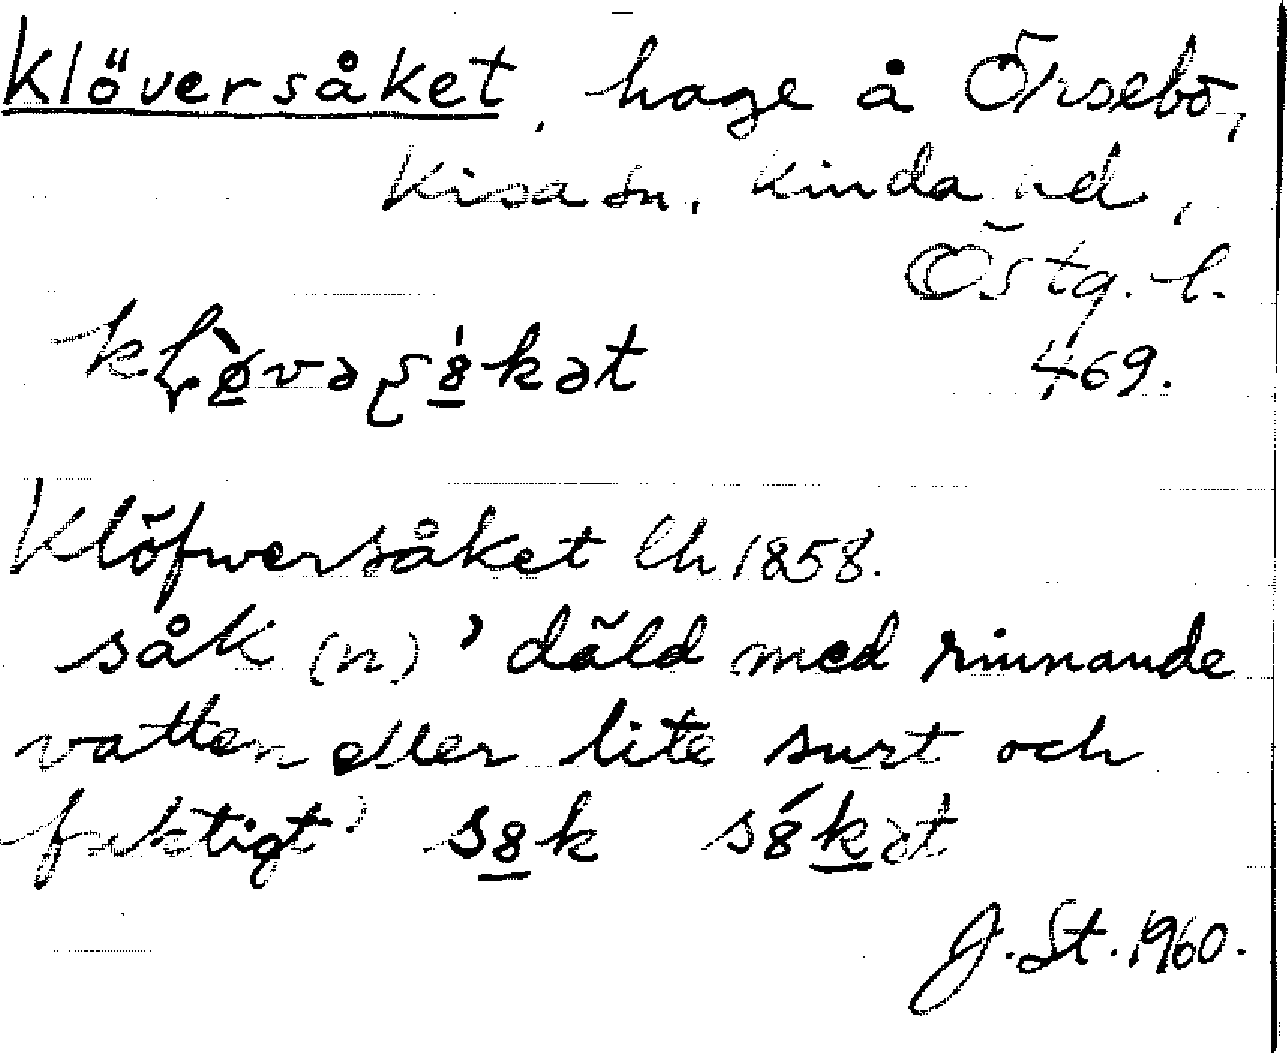 Klöversåket, hage å Örsebo,
Kisa sn, Kinda hd,
Östg. l.
469.
Klöfwersåket lh 1858.
såk (n) 'däld med rinnande
vatten eller lite surt och
fuktigt' s8k s8́kət
J. St. 1960.